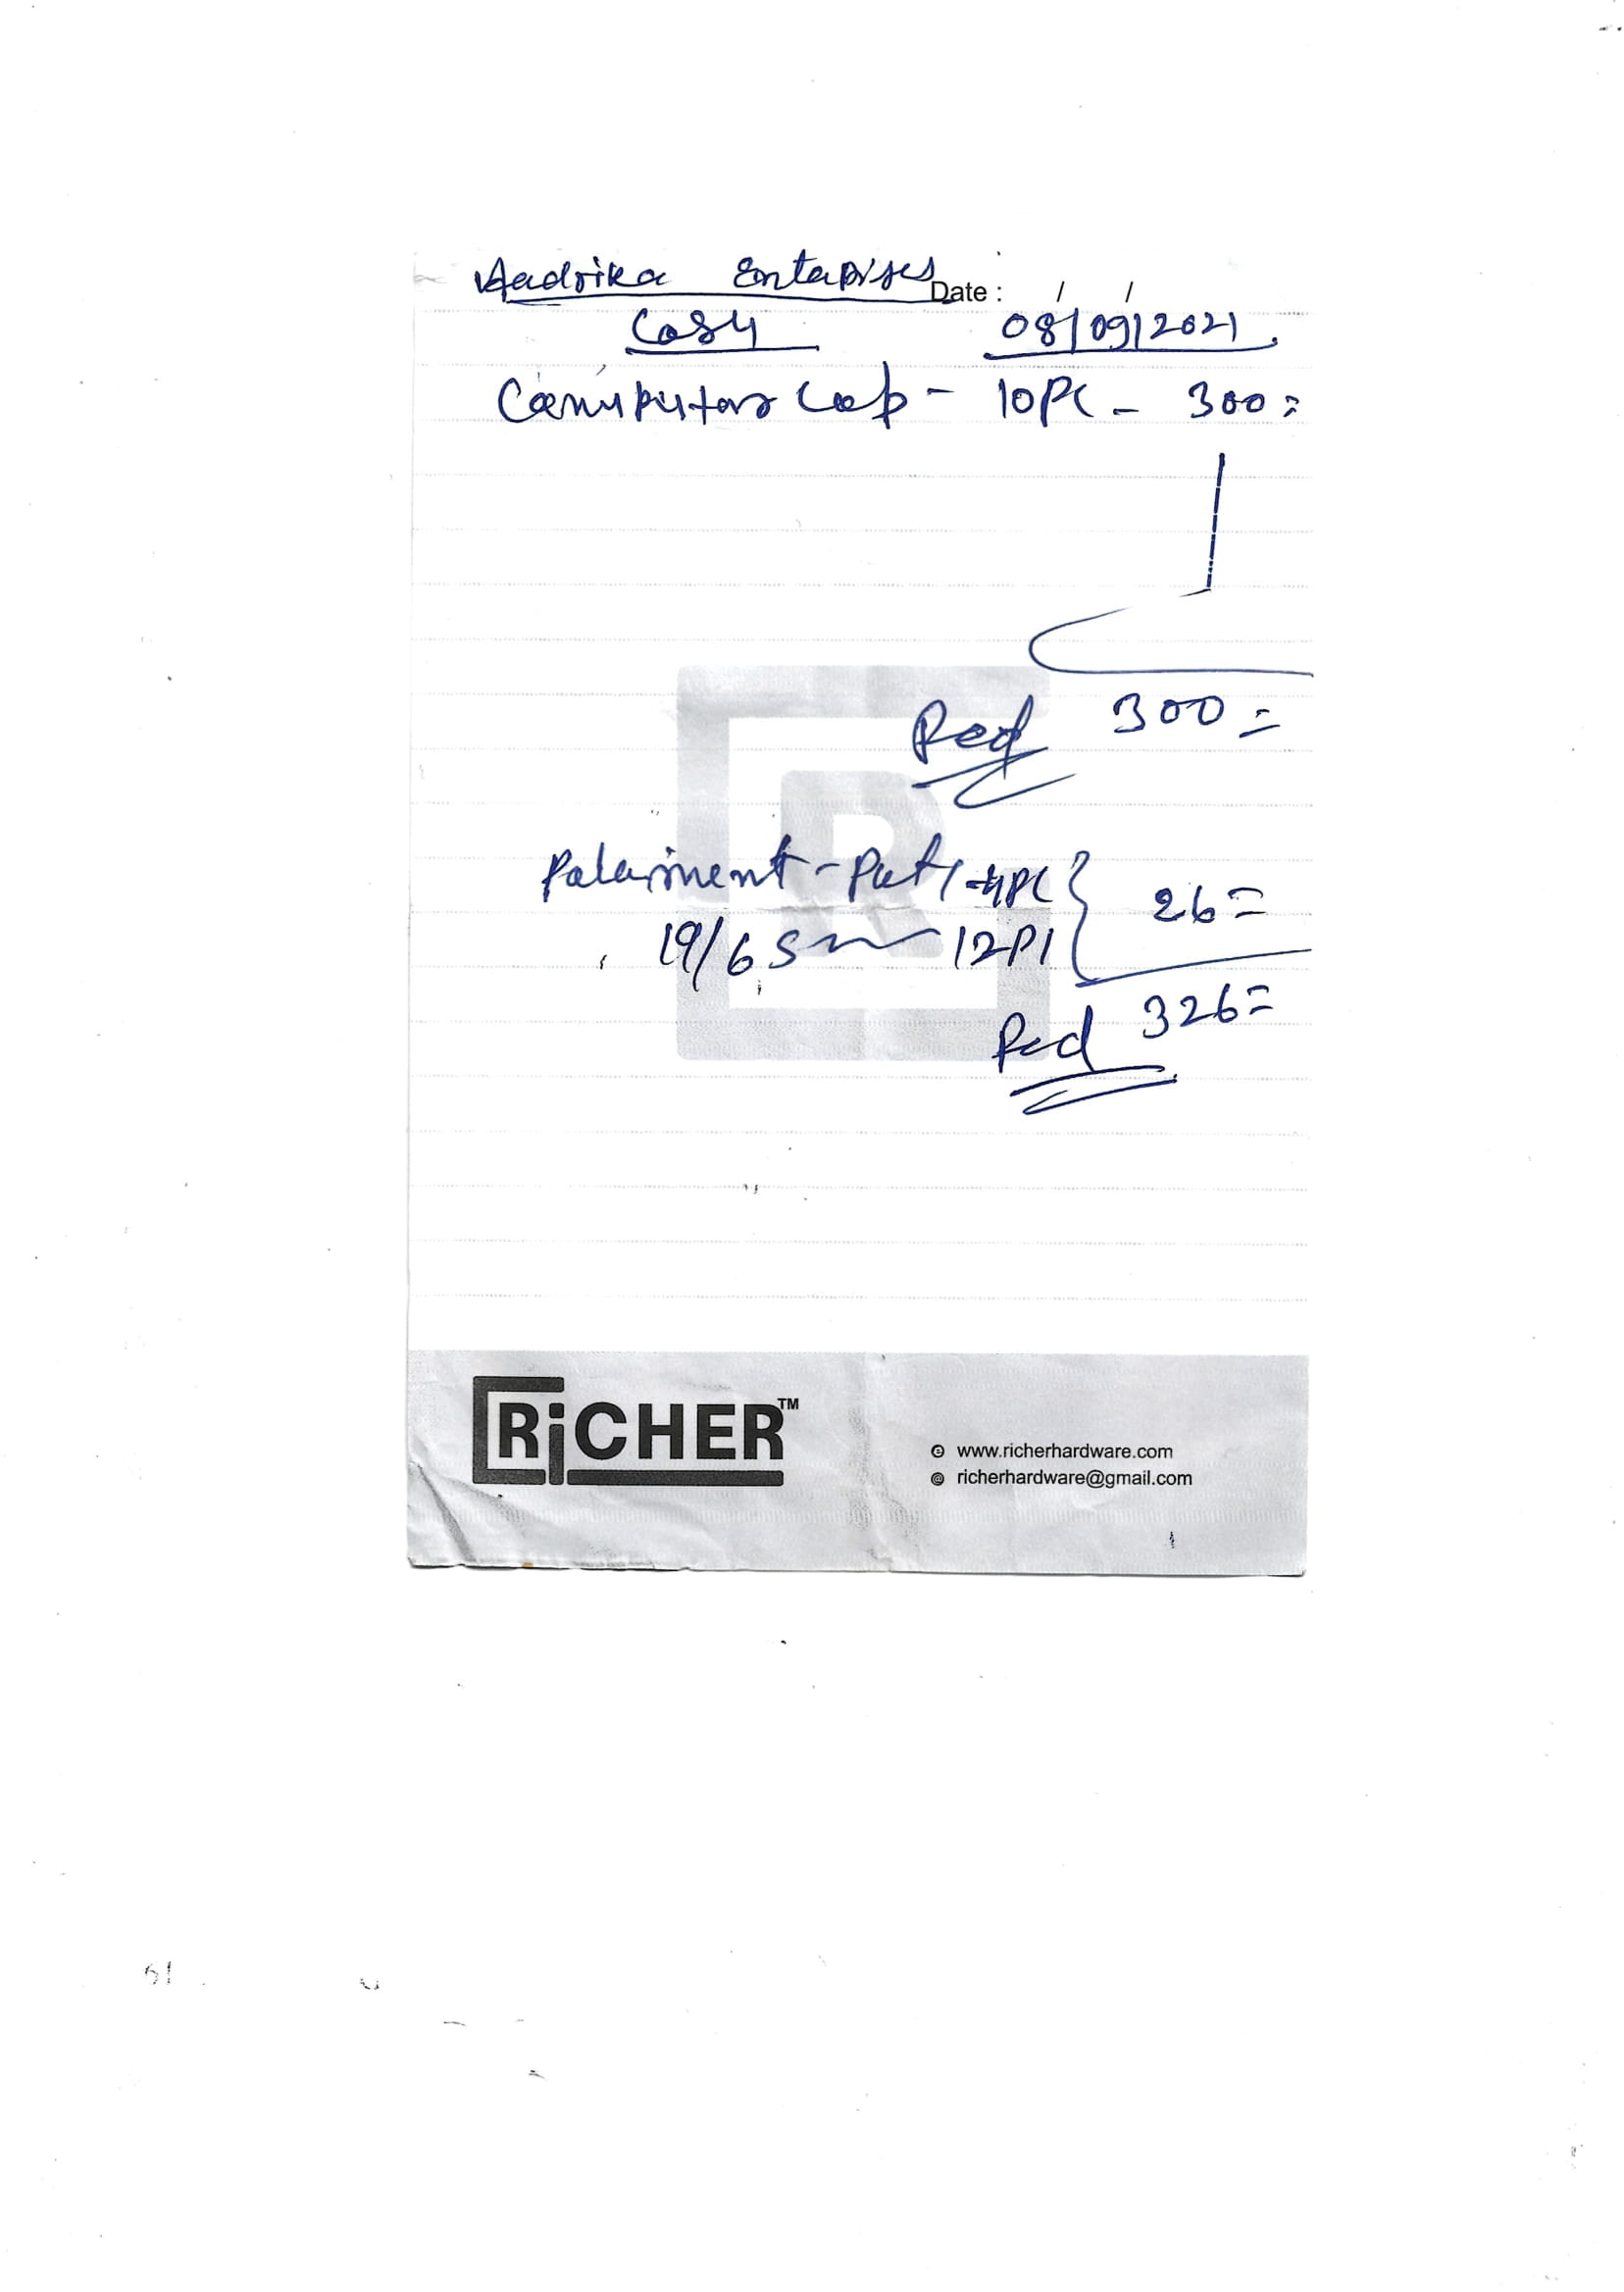 Aadrika Entaprises
Date : / /
Cash 08/09/2021
Computer Cap - 10PC - 300=
300=
Palarment - Pati - 4PC
26=
19/6 S 12PC
326=
Ped
RiCHER™
www.richerhardware.com
richerhardware@gmail.com